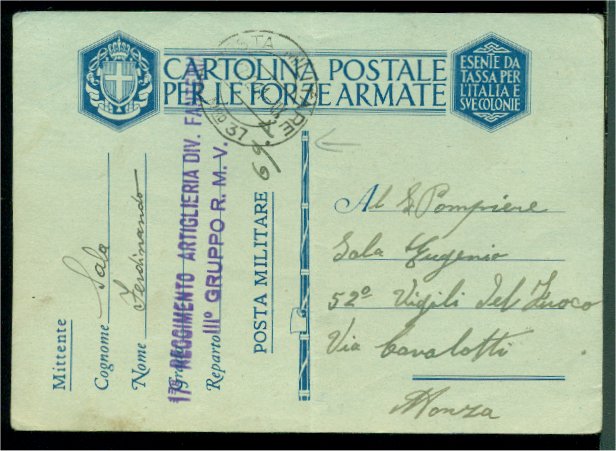 CARTOLINA POSTALE
PER LE FORZE ARMATE
ESENTE DA
TASSA PER
L'ITALIA E
SVE COLONIE
POSTA MILITARE
No 37
69.
Mittente
Cognome Sala
Nome Ferdinando
Grado
Reparto
17° REGGIMENTO ARTIGLIERIA DIV.
III° GRUPPO R. M. V.
POSTA MILITARE
Al S. Pompiere
Sala Eugenio
52° Vigili Del Fuoco
Via Cavalotti
Monza